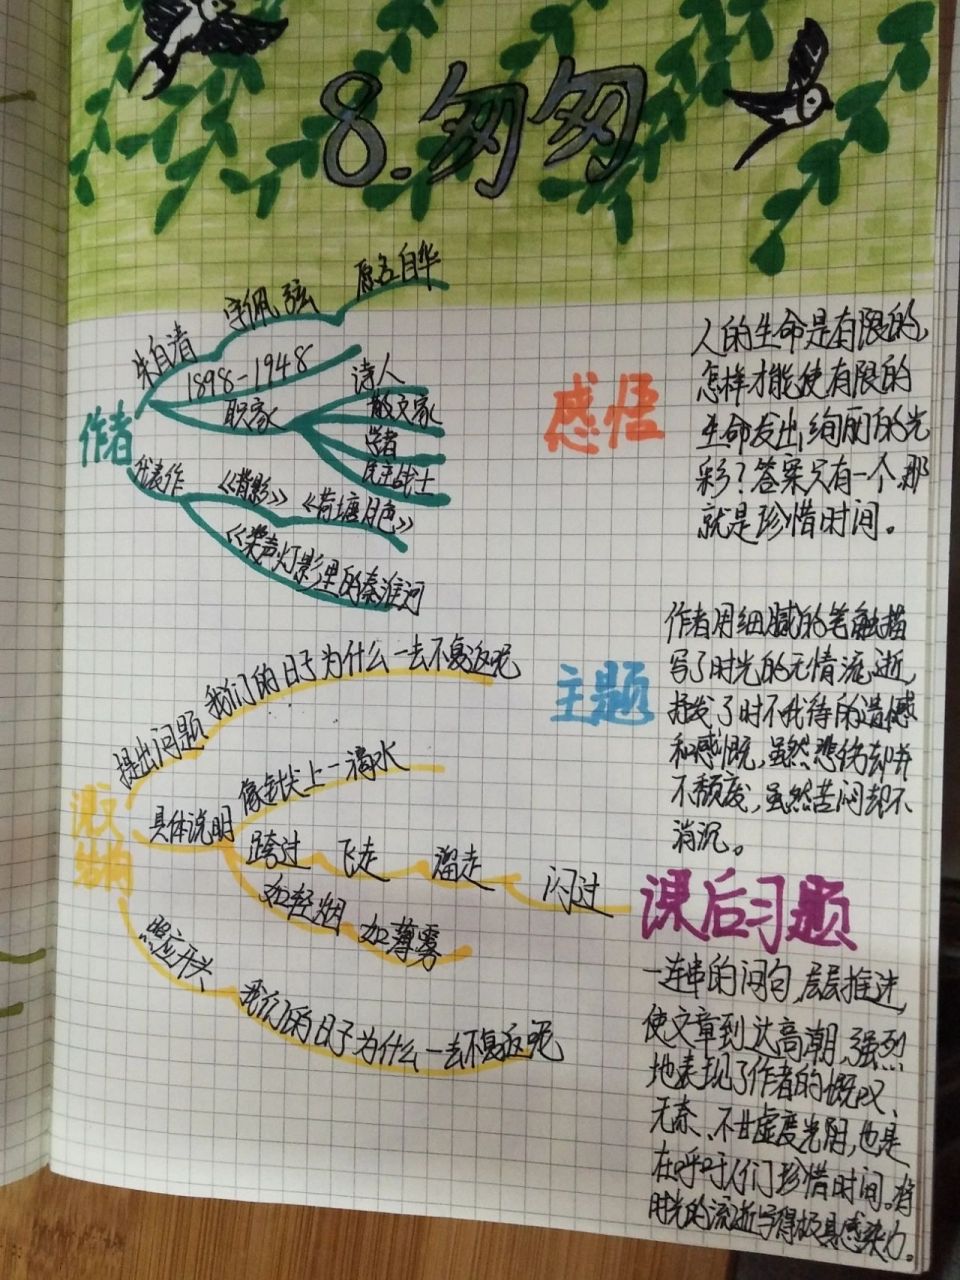 8.匆匆
作者
朱自清
字佩弦
原名自华
1898-1948
职家
诗人
散文家
学者
民主战士
代表作
《背影》
《荷塘月色》
《桨声灯影里的秦淮河
感悟
人的生命是有限的,
怎样才能使有限的
生命发出绚丽的光
彩?答案只有一个,那
就是珍惜时间。
课文
结构
提出问题
我们的日子为什么一去不复返呢
具体说明
像针尖上一滴水
跨过
飞走
溜走
闪过
如轻烟
如薄雾
照应开头
我们的日子为什么一去不复返呢
主题
作者用细腻的笔触描
写了时光的无情流逝,
抒发了时不我待的遗憾
和感慨,虽然悲伤却并
不颓废,虽然苦闷却不
消沉。
课后习题
一连串的问句,层层推进,
使文章到达高潮,强烈
地表现了作者的慨叹、
无奈、不甘虚度光阴,也是
在呼吁人们珍惜时间。将
时光的流逝写得极具感染力。